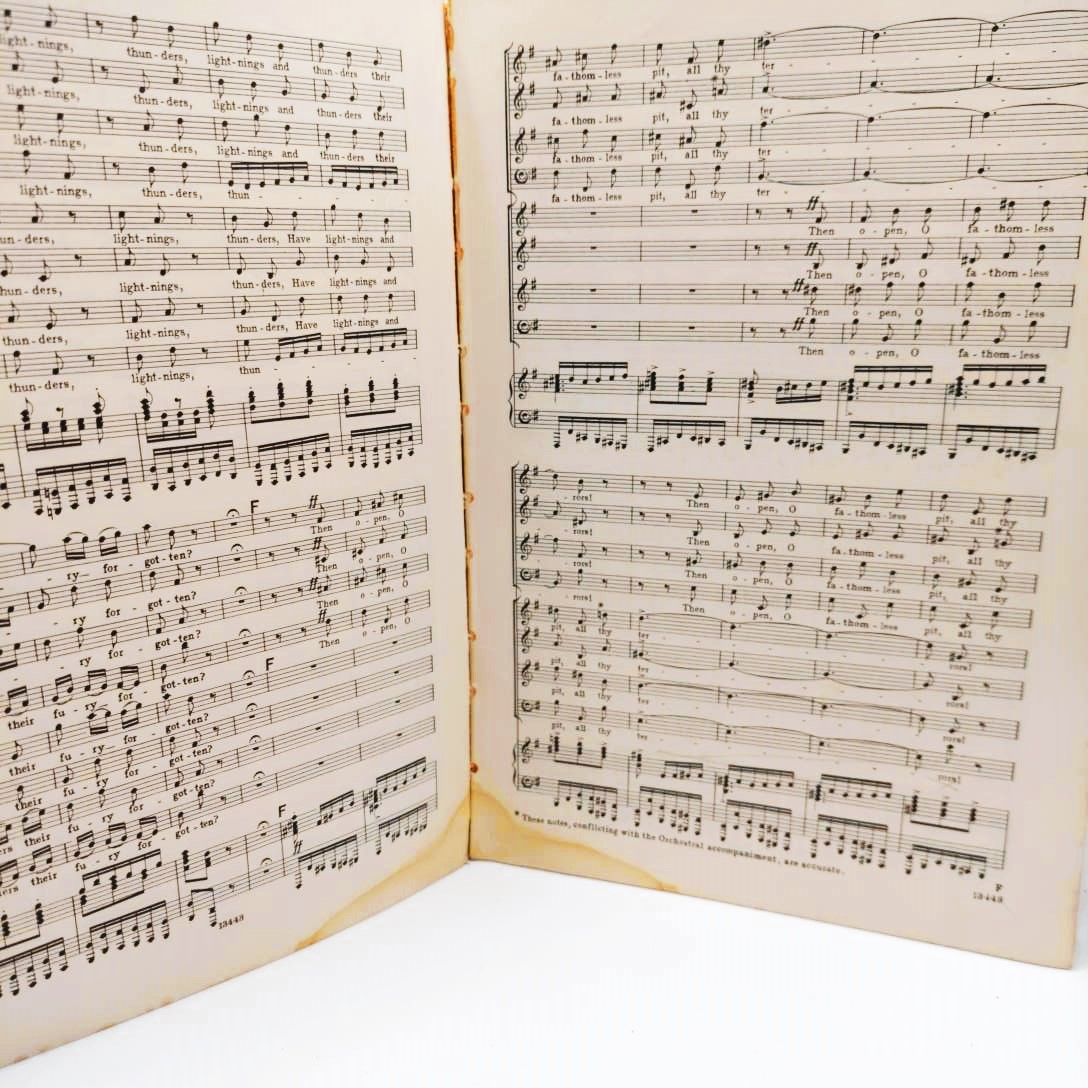 light-nings, thun-ders, light-nings and thun-ders their
light-nings, thun-ders, light-nings and thun-ders their
light-nings, thun-ders, light-nings and thun-ders their
light-nings, thun-ders, thun -
un-ders, light-nings, thun-ders, Have light-nings and
hun-ders, light-nings, thun-ders, Have light-nings and
thun-ders, light-nings, thun-ders, Have light-nings and
thun-ders, light-nings, thun
F
- ry for - got-ten? ff Then o - pen, O
- ry for - got-ten? ff Then o - pen, O
- ry for - got-ten? ff Then o - pen, O
their fu - ry for - got-ten? ff Then o - pen, O
F
their fu - ry - for - got-ten?
their fu - ry for - got-ten?
ers their fu - ry for - got-ten?
ders their fu - ry for - got-ten?
F
ff
13443
fa - thom - less pit, all thy ter - - -
fa - thom - less pit, all thy ter - - -
fa - thom - less pit, all thy ter - - -
fa - thom - less pit, all thy ter
ff Then o - pen, O fa - thom - less
ff Then o - pen, O fa - thom - less
ff Then o - pen, O fa - thom - less
ff Then o - pen, O fa - thom - less
- rors! Then o - pen, O fa - thom - less pit, all thy
- rors! Then o - pen, O fa - thom - less pit, all thy
- rors! Then o - pen, O fa - thom - less pit, all thy
- rors! Then o - pen, O fa - thom - less pit, all thy
pit, all thy ter - - - rors!
pit, all thy ter - - - rors!
pit, all thy ter - - - rors!
pit, all thy ter - - - rors!
* These notes, conflicting with the Orchestral accompaniment, are accurate.
F
13443